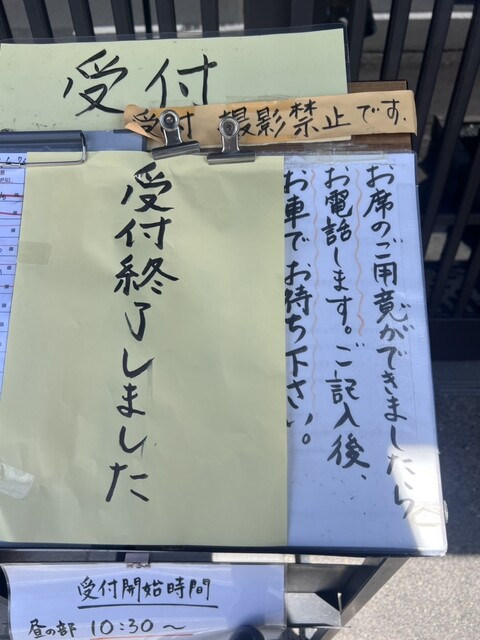 受付
受付 撮影禁止です.
お席のご用意ができましたら
お電話します。ご記入後、
お車でお待ち下さい。
受付終了しました
受付開始時間
昼の部 10:30〜